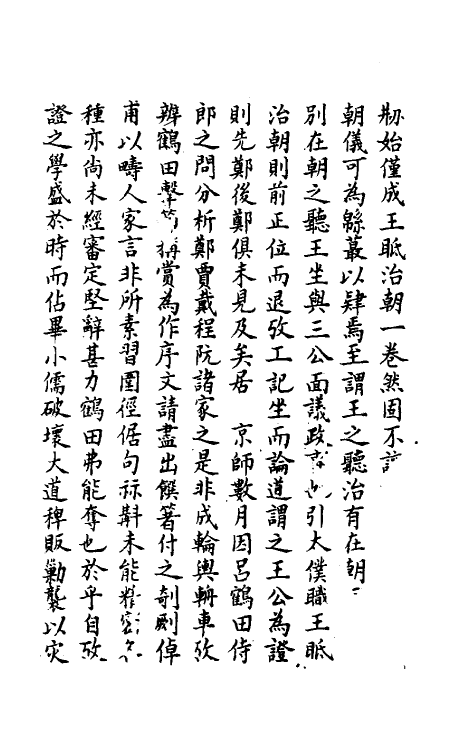 刱始僅成王眡治朝一卷然固不謂
朝儀可為緜蕞以肄焉至謂王之聽治有在朝
別在朝之聽王坐與三公面議政也引太僕職王眡
治朝則前正位而退攷工記坐而論道謂之王公為證
則先鄭後鄭俱未見及矣居　京師數月因呂鶴田侍
郎之問分析鄭賈戴程阮諸家之是非成輪輿輈車攷
辨鶴田擊節稱賞為作序文請盡出饌箸付之剞劂倬
甫以疇人家言非所素習圜徑倨句觓斠未能精密
種亦尚未經審定堅辭甚力鶴田弗能奪也於乎自攷
證之學盛於時而佔畢小儒破壞大道稗販勦襲以災